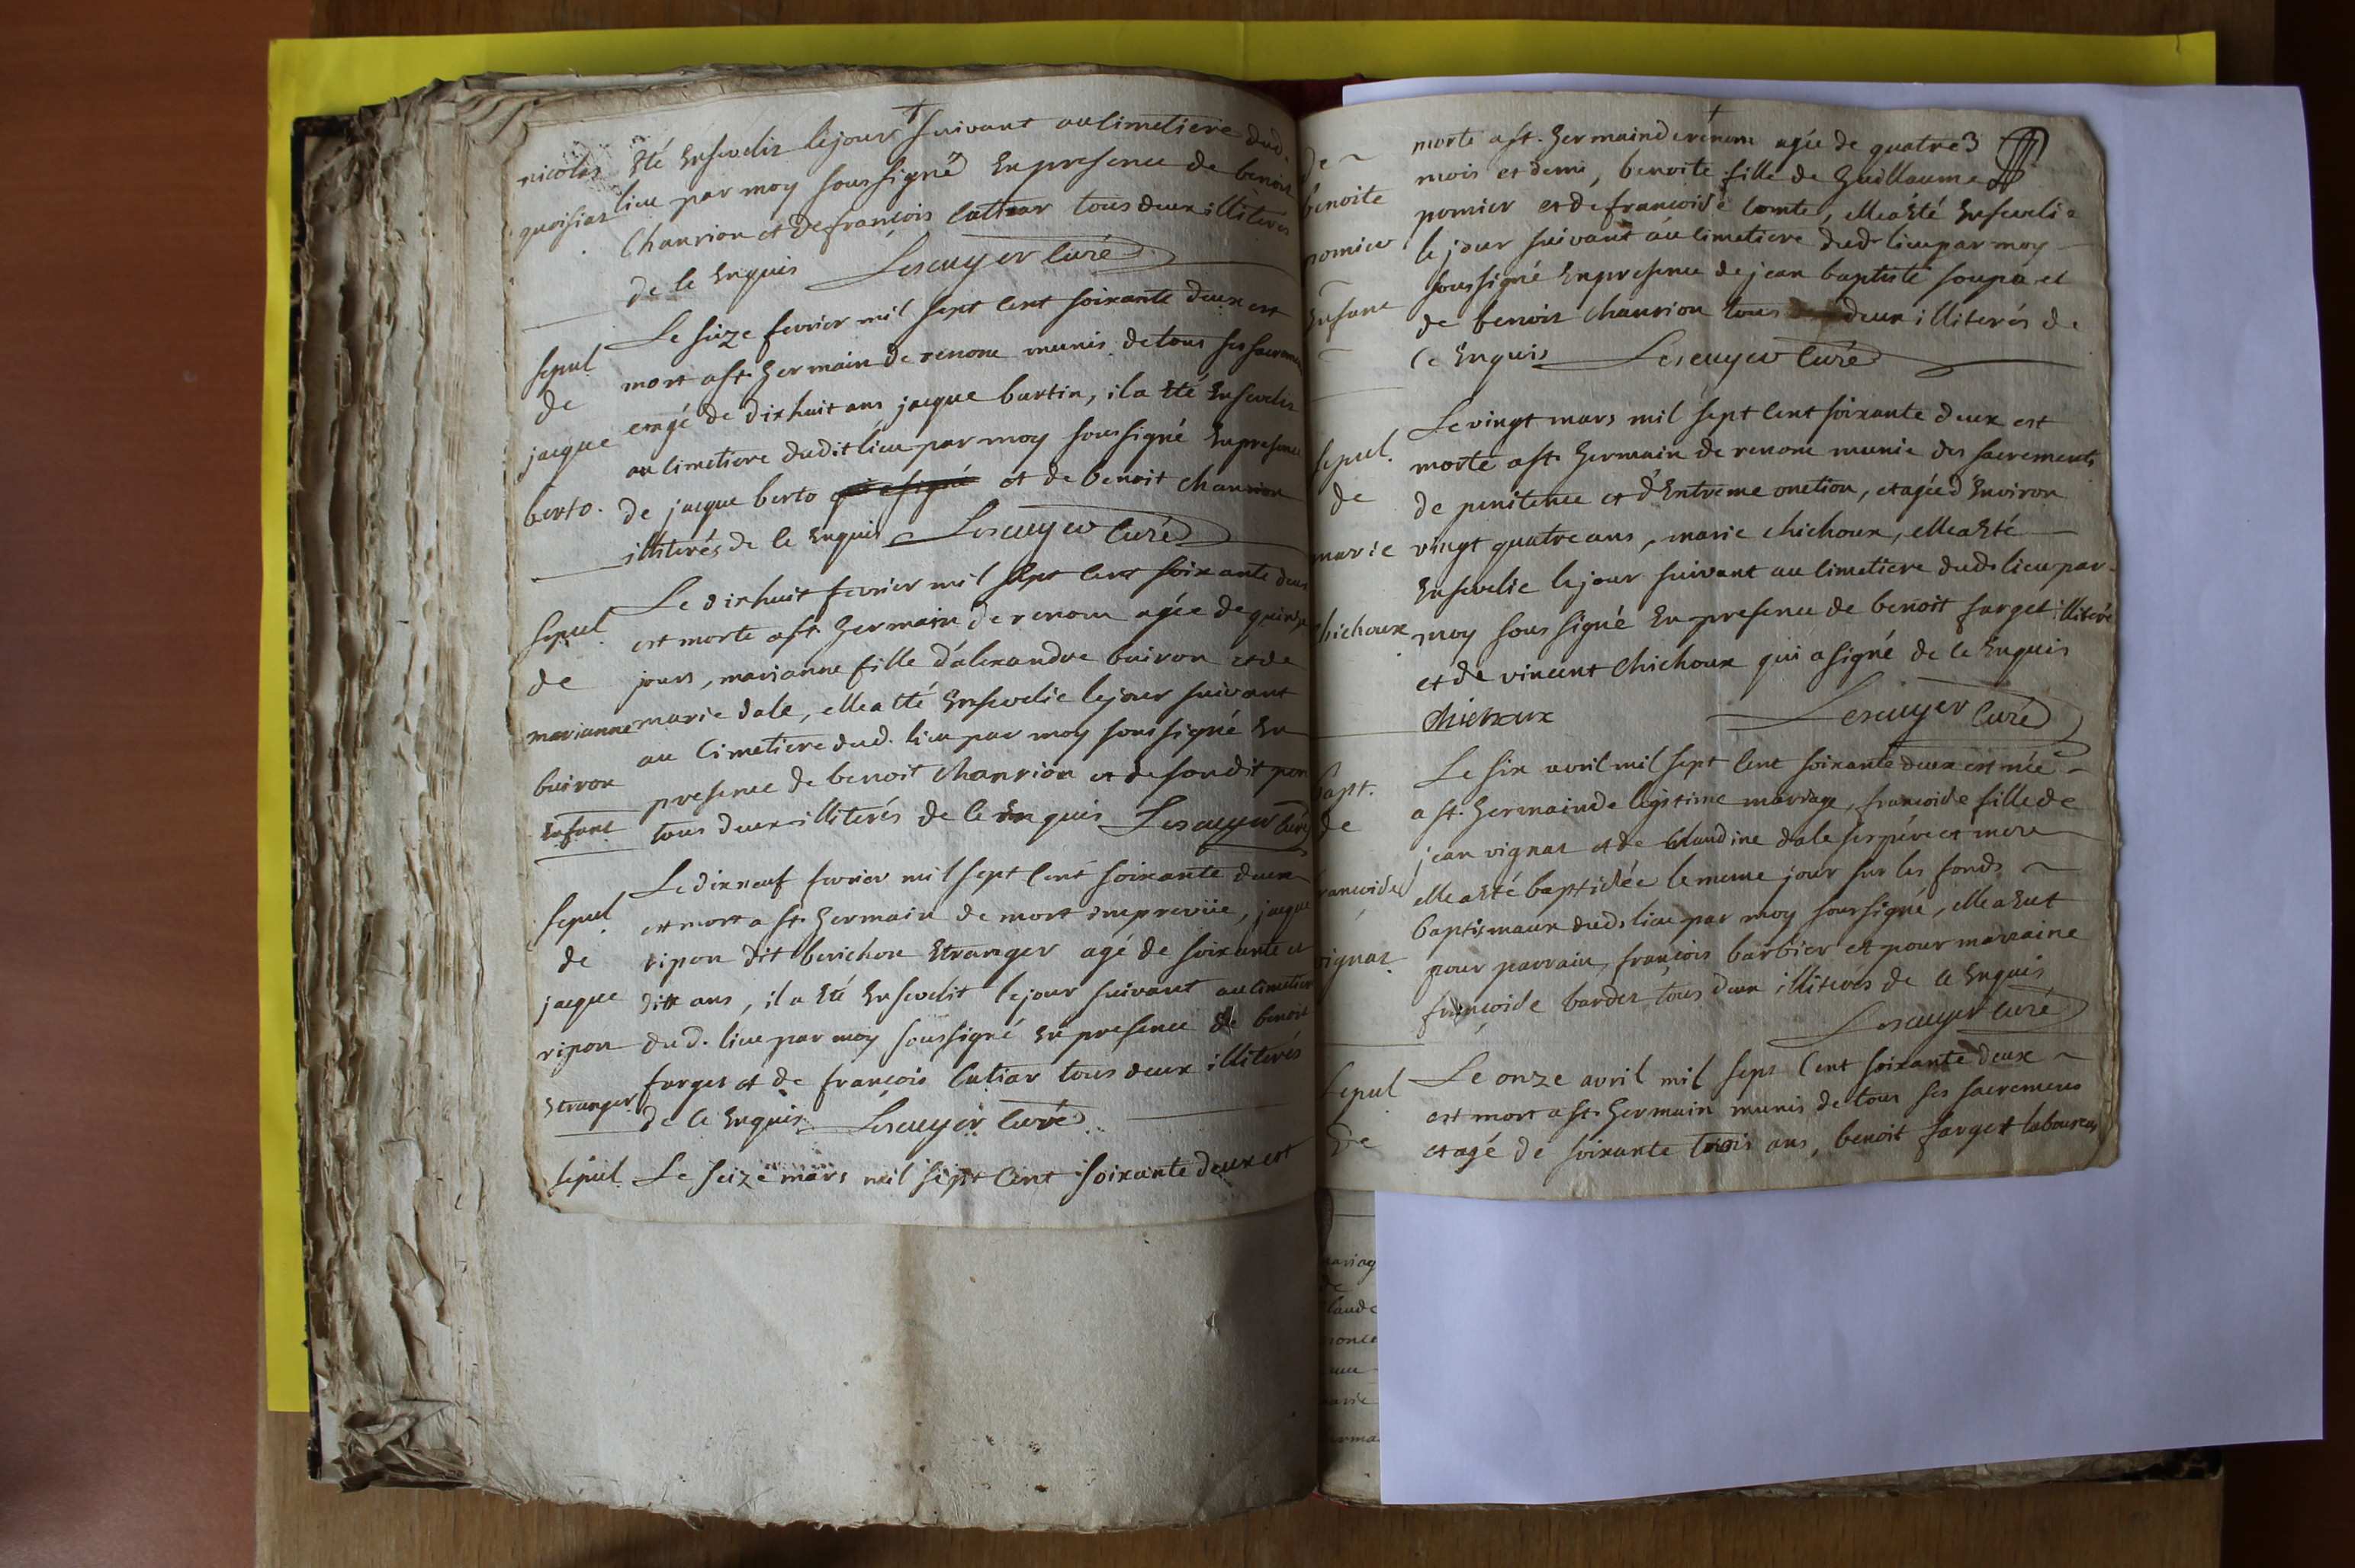 nicolas
quoisiar
été Ensevelis lejour suivant aulimetiere dud.
lieu par moy soussigné En presence de benoit
Chanrion et de francois lutiar tous deux illiterés
de le Enquis Lescuyer Curé
sepul
de
jacque
berto.
Le seize fevrier mil sept cent soixante deux est
mort a st. Germain de renom munis de tous ses sacremens
eagé de dix huit ans jacque bertin, il a été Ensevelis
au cimetiere dudit lieu par moy soussigné En presence
de jacque berto qui a signé et de benoit chanrion
illiterés de ce Enquis Lescuyer Curé
sepul
de
marianne
buiron
Enfant
Le dixhuit fevrier mil sept cent soixante deux
est morte a st. Germain de renom agée de quinze
jours, marianne fille d'alexandre buiron et de
marie dale, elle a été Ensevelie le jour suivant
au Cimetiere dud. lieu par moy soussigné En
presence de benoit chanrion et de
tous deux illiterés de ce Enquis Lescuyer curé
sepul
de
jacque
ripon
Etranger
Le dixneuf fevrier mil sept cent soixante deux
est mort a st. Germain de mort imprevüe, jacque
ripon dit berichon Etranger agé de soixante et
dix ans, il a été Ensevelit le jour suivant au cimetier
dud. lieu par moy soussigné En presence de benoit
farget et de francois lutiar tous deux illiterés
de ce Enquis Lescuyer Curé
sepul Le seize mars mil sept cent soixante deux est
de
benoite
pomier
Enfant
morte a st. Germain de renom agée de quatre 3
mois et demi, benoite fille de Guillaume
pomier et de francoise comte, elle a été Enseveli
le jour suivant au cimetiere dud. lieu par moy
soussigné En presence de jean baptiste soupa et
de benoit chanrion tous deux illiterés de
ce Enquis Lescuyer Curé
sepul.
de
marie
chichoux
Le vingt mars mil sept cent soixante deux est
morte a st. Germain de renom munie des sacrements
de penitence et d'Entreme onction, et agée d'Environ
vingt quatre ans, marie chichoux, elle a été
Ensevelie le jour suivant au cimetiere dud. lieu par
moy soussigné En presence de benoit farget illiteré
et de vincent chichoux qui a signé de ce Enquis
Chichoux Lescuyer Curé
bapt.
de
francoise
vignat
Le six avril mil sept cent soixante deux est née
a st. Germain de legitime mariage, francoise fille de
jean vignat et de claudine dale ses père et mere
elle a été baptisée le meme jour sur les fonds
baptismaux dud. lieu par moy soussigné, elle a eut
pour parrain, francois barbier et pour marraine
francoise bardet tous deux illiterés de ce Enquis
Lescuyer Curé
sepul
De
Le onze avril mil sept cent soixante deux
est mort a st. Germain munis de tous ses sacremens
et agé de soixante trois ans, benoit farget laboureur
mariag
de
laude